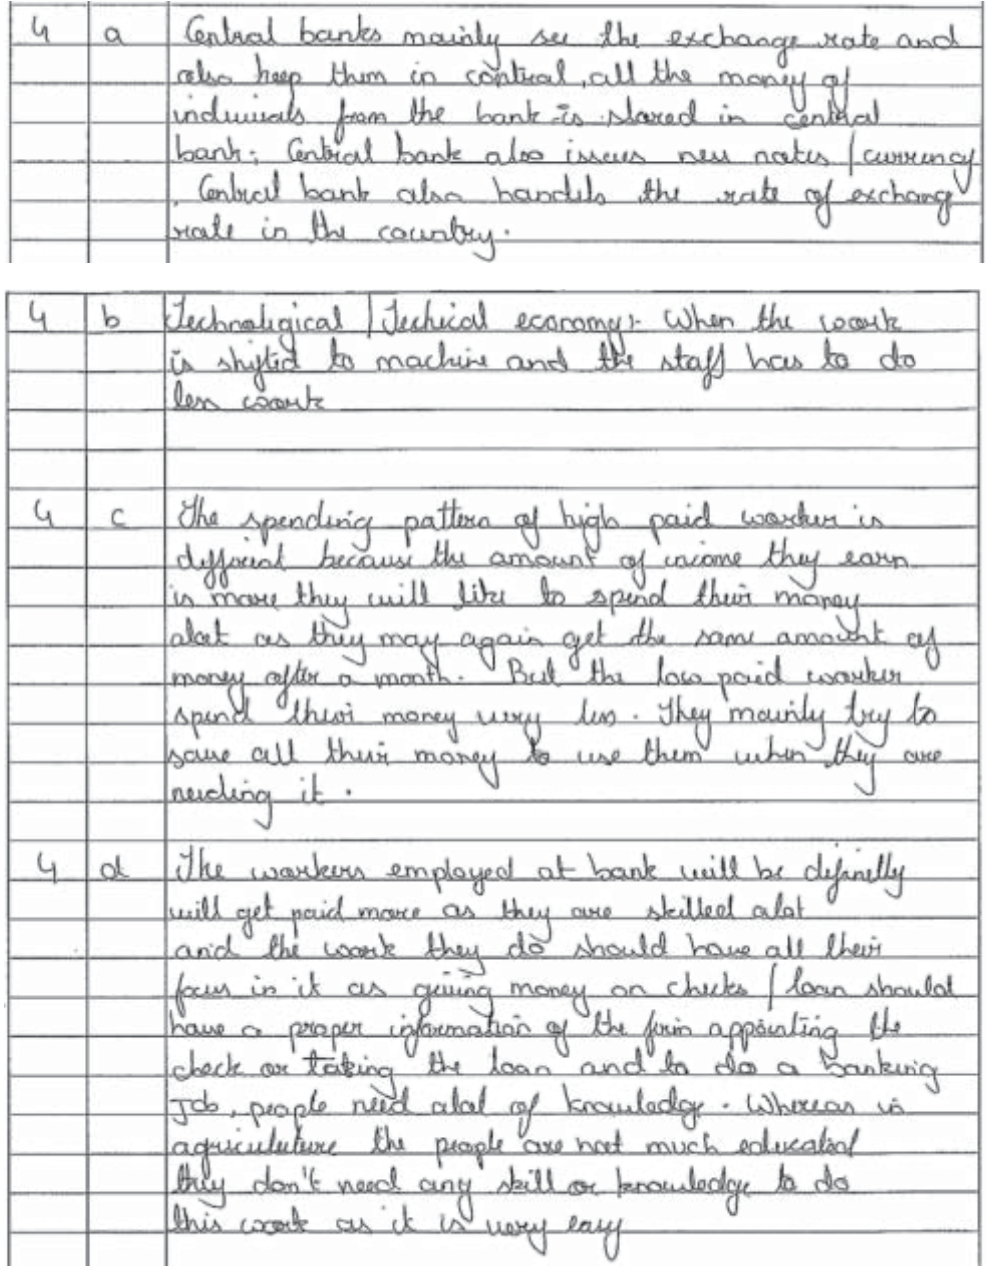 4 a Central banks mainly see the exchange rate and
also keep them in control, all the money of
indiviuals from the bank is stored in central
bank; Central bank also issues new notes / currency
, Central bank also handels the rate of exchange
rate in the country.
4 b Technoligical / Techical economy:- When the work
is shifted to machine and the staff has to do
less work
4 c The spending pattern of high paid worker is
different because the amount of income they earn
is more they will like to spend their money
alot as they may again get the same amount of
money after a month. But the low paid worker
spend their money very less. They mainly try to
save all their money to use them when they are
needing it.
4 d The workers employed at bank will be definelly
will get paid more as they are skilled alot
and the work they do should have all their
focus in it as giving money on checks / loan should
have a proper information of the firm appointing the
check or taking the loan and to do a banking
Job, people need alot of knowledge. Whereas in
agricululture the people are not much educated
they don't need any skill or knowledge to do
this work as it is very easy